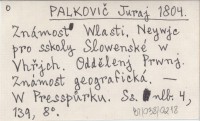 PALKOVIČ Juraj 1804.
Známost Wlasti, Neywje
pro sskoly Slowenské w
Vhřjch. Oddělenj Prwnj.
Známost geografická. —
W Presspůrku. Ss. nlb. 4,
139, 8°.